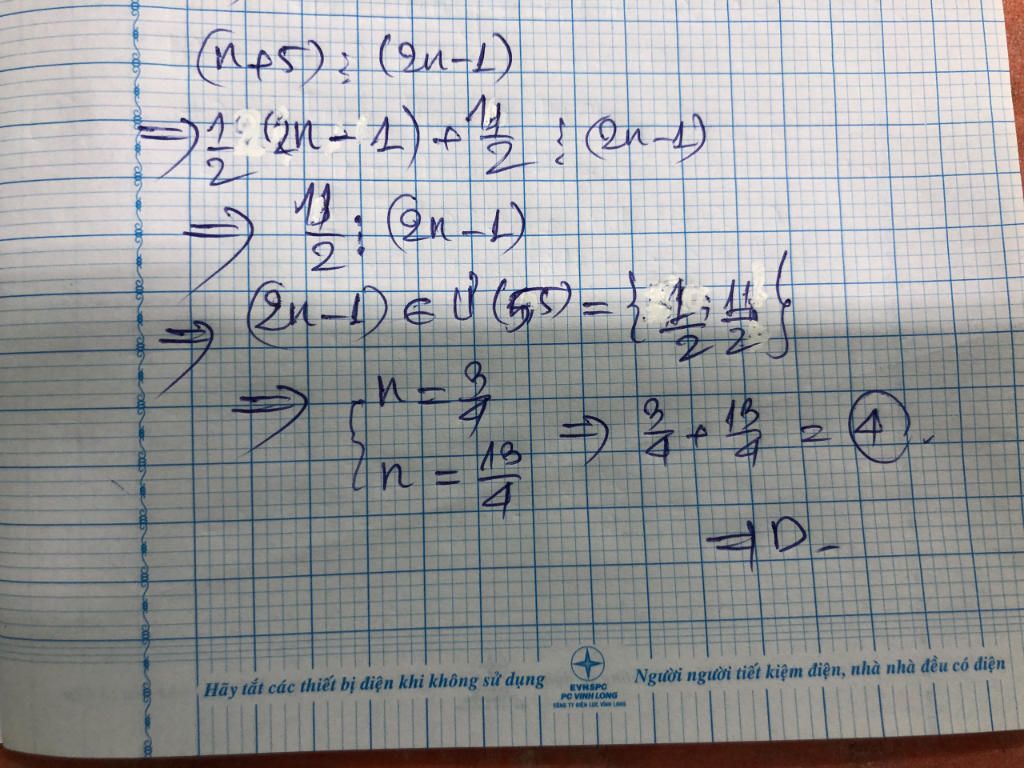 (n+5) ⋮ (2n-1)
=> 1/2 (2n - 1) + 11/2 ⋮ (2n-1)
=> 11/2 ⋮ (2n-1)
=> (2n-1) ∈ Ư (5,5) = { 1/2 ; 11/2 }
=> { n = 3/4
n = 13/4 => 3/4 + 13/4 = 4.
=> D.
Hãy tắt các thiết bị điện khi không sử dụng
EVNSPC
PC VINH LONG
CÔNG TY ĐIỆN LỰC VĨNH LONG
Người người tiết kiệm điện, nhà nhà đều có điện